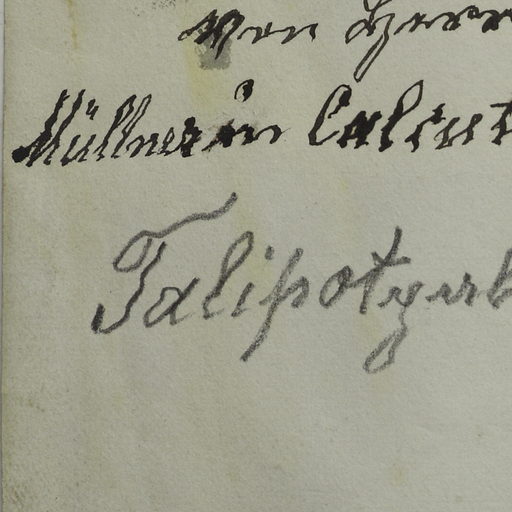 Von Herr
Müllner in Calcut
Talipotyurb